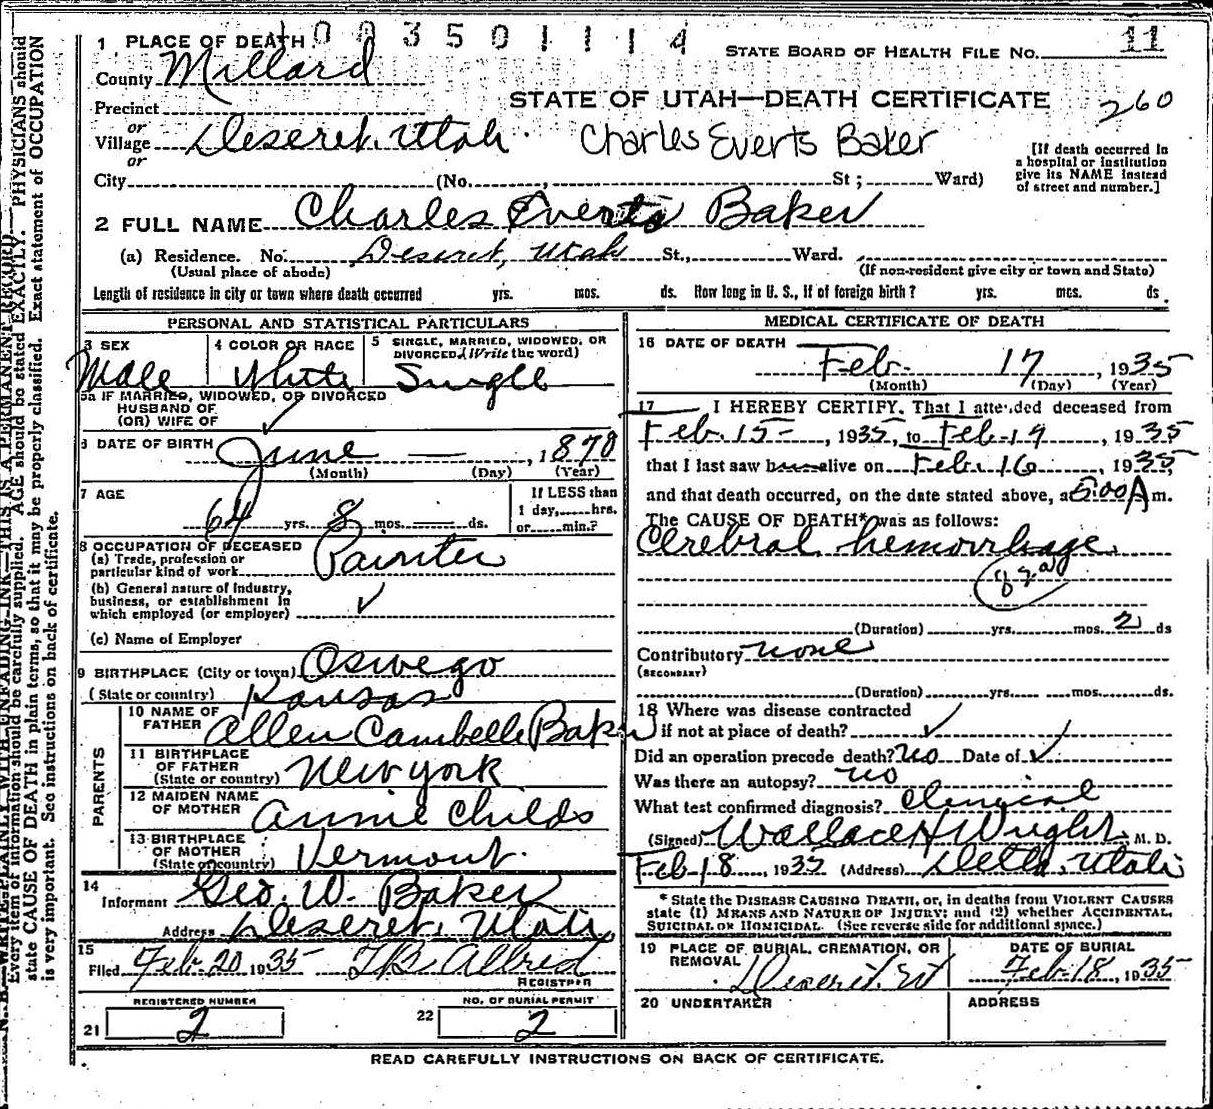 1 PLACE OF DEATH 0 0 3 5 0 1 1 1 4
STATE BOARD OF HEALTH FILE NO. 11
County Millard
STATE OF UTAH—DEATH CERTIFICATE 260
Precinct
or
Village Deseret, Utah. Charles Everts Baker
or
[If death occurred in
a hospital or institution
give its NAME instead
of street and number.]
City (No. , St ; Ward)
2 FULL NAME Charles Everts Baker
(a) Residence. No. Deseret, Utah St., Ward.
(Usual place of abode) (If non-resident give city or town and State)
Length of residence in city or town where death occurred yrs. mos. ds. How long in U. S., if of foreign birth? yrs. mos. ds.
PERSONAL AND STATISTICAL PARTICULARS
3 SEX
Male
4 COLOR OR RACE
White
5 SINGLE, MARRIED, WIDOWED, OR
DIVORCED (Write the word)
Single
5a IF MARRIED, WIDOWED, OR DIVORCED
HUSBAND OF
(OR) WIFE OF ✓
6 DATE OF BIRTH June — , 1870
(Month) (Day) (Year)
7 AGE
64 yrs. 8 mos. — ds.
If LESS than
1 day, hrs.
or min.?
8 OCCUPATION OF DECEASED
(a) Trade, profession or
particular kind of work Painter
(b) General nature of industry,
business, or establishment in
which employed (or employer) ✓
(c) Name of Employer
9 BIRTHPLACE (City or town) Oswego
(State or country) Kansas
PARENTS
10 NAME OF
FATHER Allen Cambelle Baker
11 BIRTHPLACE
OF FATHER
(State or country) New York
12 MAIDEN NAME
OF MOTHER Annie Childs
13 BIRTHPLACE
OF MOTHER
(State or country) Vermont.
14
Informant Geo. W. Baker
Address Deseret, Utah,
15
Filed Feb. 20 1935 Allred
REGISTRAR
REGISTERED NUMBER
21 2
NO. OF BURIAL PERMIT
22 2
MEDICAL CERTIFICATE OF DEATH
16 DATE OF DEATH
Feb. 17, 1935
(Month) (Day) (Year)
17 I HEREBY CERTIFY, That I attended deceased from
Feb. 15-, 1935, to Feb-17, 1935
that I last saw h alive on Feb. 16, 1935,
and that death occurred, on the date stated above, at 5:00 A m.
The CAUSE OF DEATH* was as follows:
Cerebral hemorrhage
82a
(Duration) yrs. mos. 2 ds
Contributory none
(SECONDARY)
(Duration) yrs. mos. ds.
18 Where was disease contracted
if not at place of death? ✓
Did an operation precede death? no Date of ✓
Was there an autopsy? no
What test confirmed diagnosis? Clinical
(Signed) Wallace H Wright M. D.
Feb-18, 1935 (Address) Delta, Utah
* State the DISEASE CAUSING DEATH, or, in deaths from VIOLENT CAUSES
state (1) MEANS AND NATURE OF INJURY; and (2) whether ACCIDENTAL,
SUICIDAL OR HOMICIDAL. (See reverse side for additional space.)
19 PLACE OF BURIAL, CREMATION, OR
REMOVAL Deseret. Ut
DATE OF BURIAL
Feb. 18, 1935
20 UNDERTAKER
ADDRESS
READ CAREFULLY INSTRUCTIONS ON BACK OF CERTIFICATE.
N. B.—WRITE PLAINLY WITH UNFADING INK—THIS IS A PERMANENT RECORD
Every item of information should be carefully supplied. AGE should be stated EXACTLY. PHYSICIANS should
state CAUSE OF DEATH in plain terms, so that it may be properly classified. Exact statement of OCCUPATION
is very important. See instructions on back of certificate.